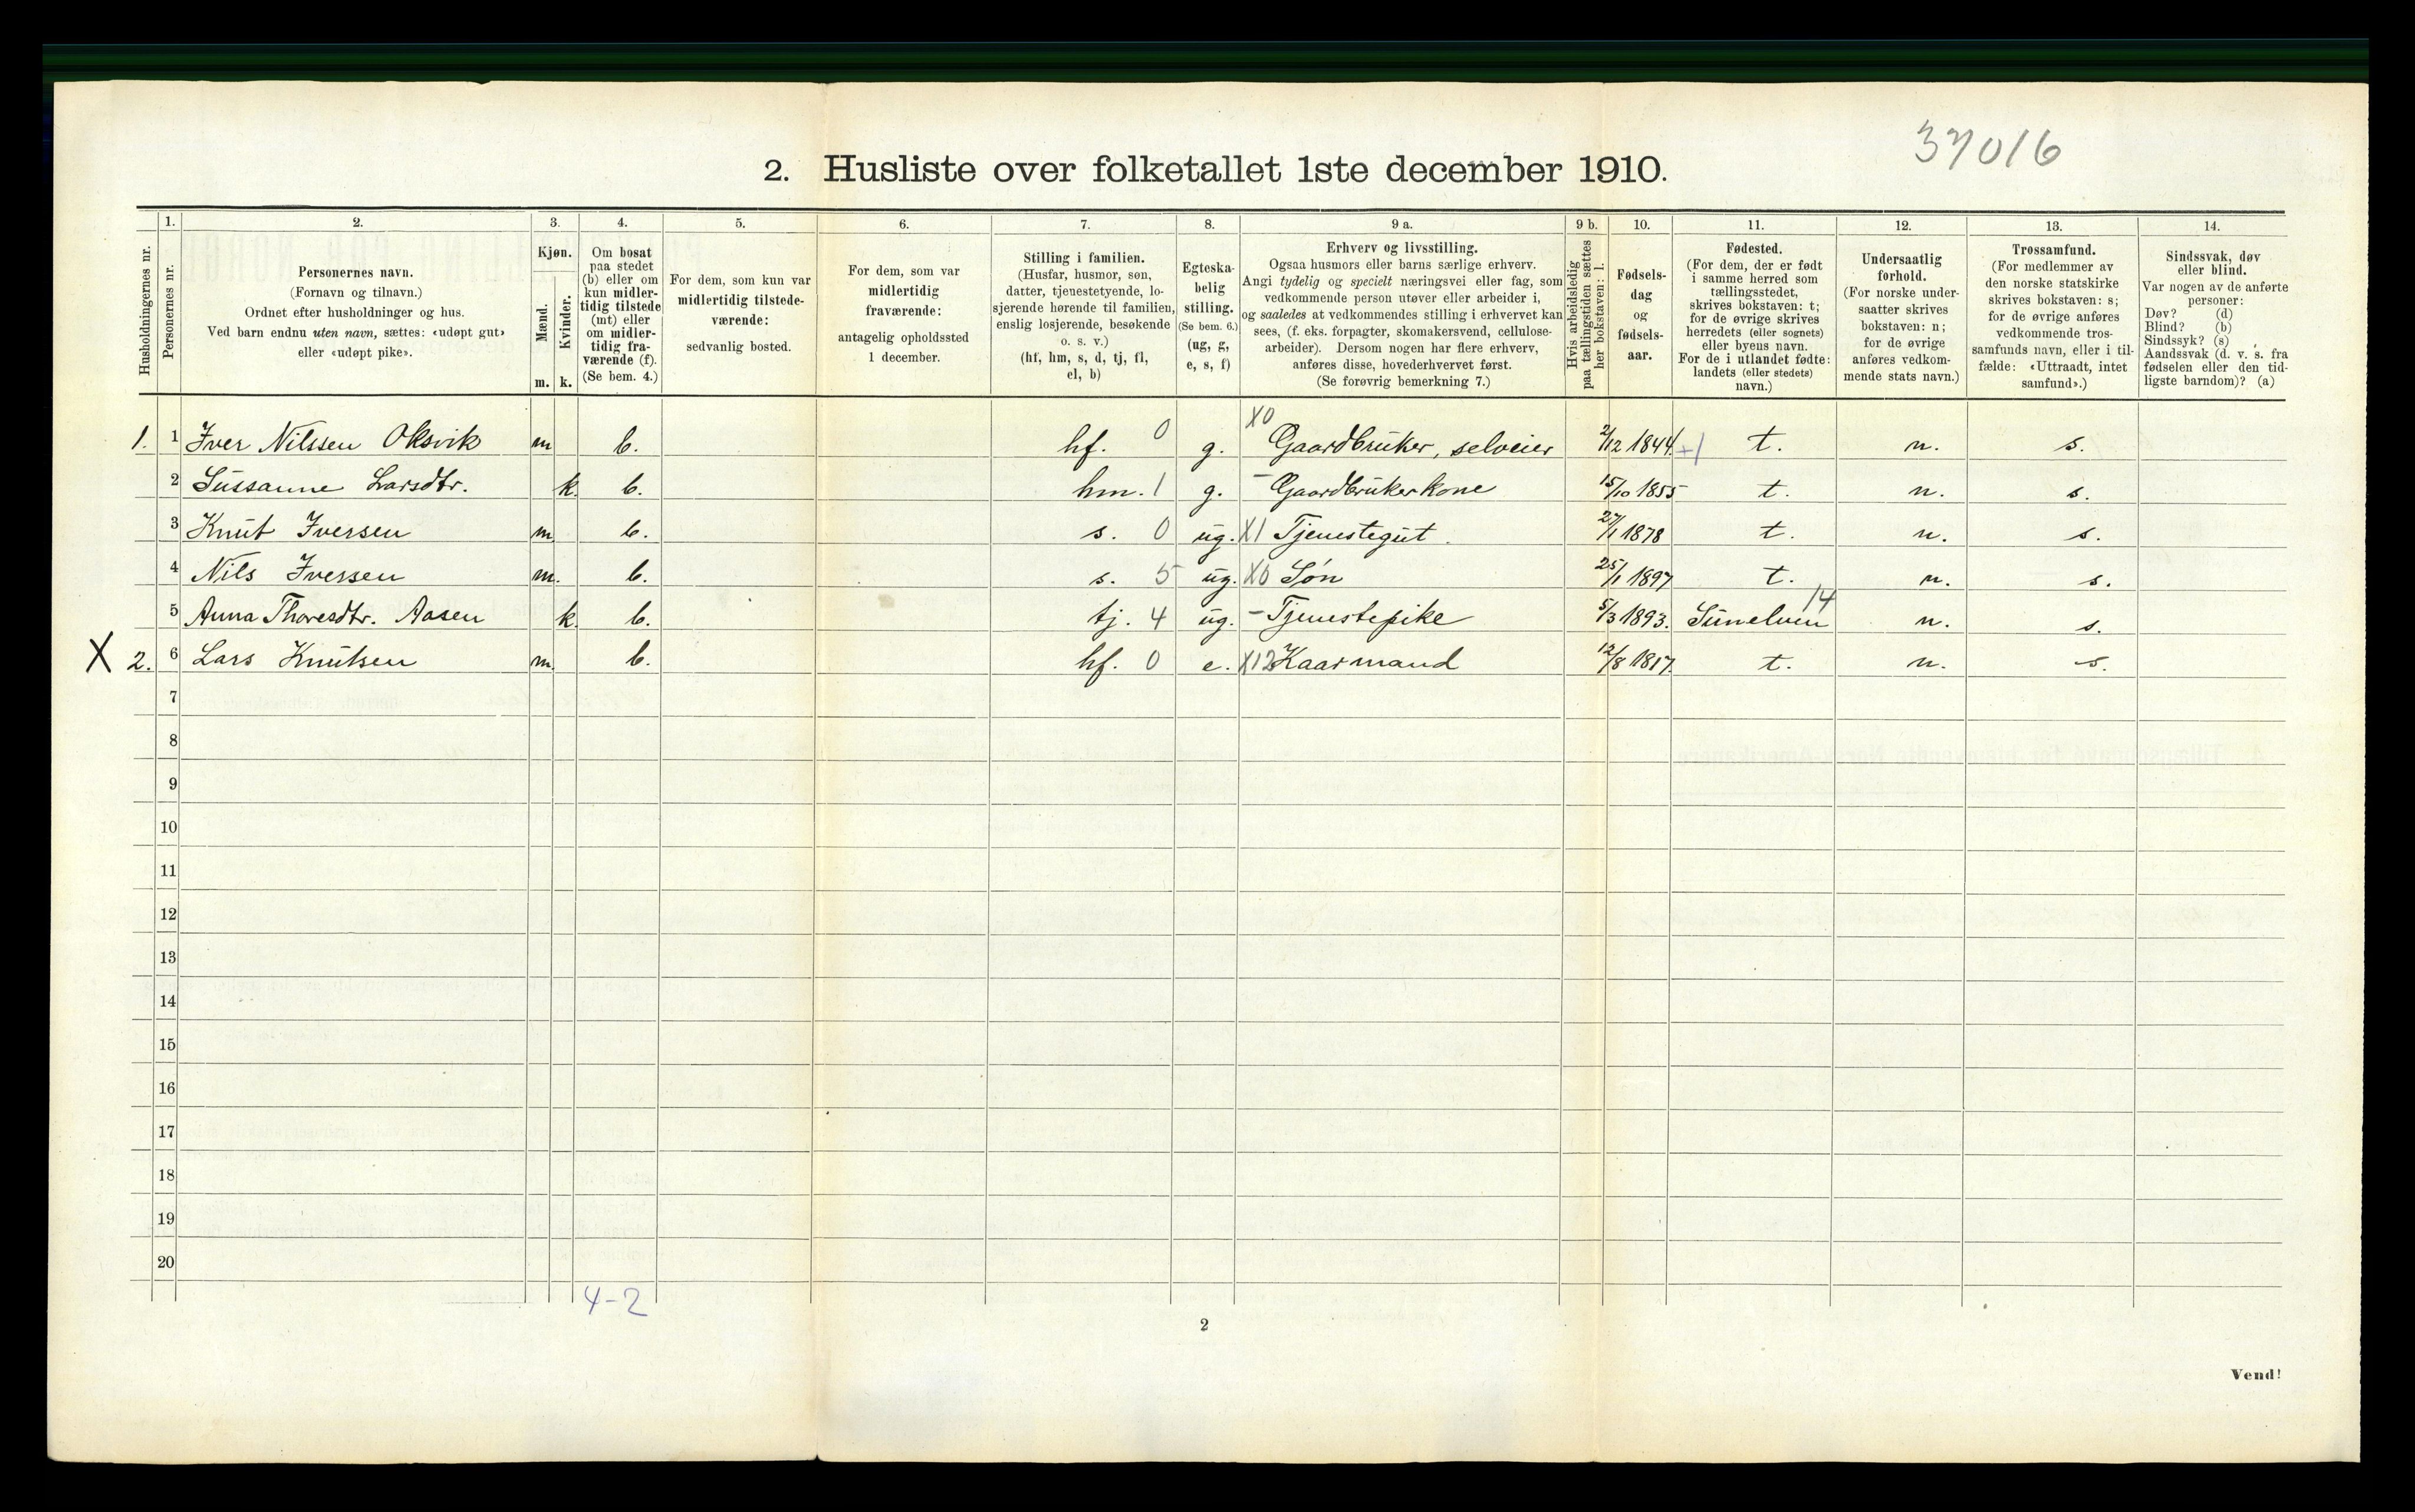 37016
2. Husliste over folketallet 1ste december 1910.
Husholdningernes nr.
1.
Personernes nr.
2.
Personernes navn.
(Fornavn og tilnavn.)
Ordnet efter husholdninger og hus.
Ved barn endnu uten navn, sættes: «udøpt gut»
eller «udøpt pike».
3.
Kjøn.
Mænd.
Kvinder.
m. k.
4.
Om bosat
paa stedet
(b) eller om
kun midler-
tidig tilstede
(mt) eller
om midler-
tidig fra-
værende (f).
(Se bem. 4.)
5.
For dem, som kun var
midlertidig tilstede-
værende:
sedvanlig bosted.
6.
For dem, som var
midlertidig
fraværende:
antagelig opholdssted
1 december.
7.
Stilling i familien.
(Husfar, husmor, søn,
datter, tjenestetyende, lo-
sjerende hørende til familien,
enslig losjerende, besøkende
o. s. v.)
(hf, hm, s, d, tj, fl,
el, b)
8.
Egteska-
belig
stilling.
(Se bem. 6.)
(ug, g,
e, s, f)
9 a.
Erhverv og livsstilling.
Ogsaa husmors eller barns særlige erhverv.
Angi tydelig og specielt næringsvei eller fag, som
vedkommende person utøver eller arbeider i,
og saaledes at vedkommendes stilling i erhvervet kan
sees, (f. eks. forpagter, skomakersvend, cellulose-
arbeider). Dersom nogen har flere erhverv,
anføres disse, hovederhvervet først.
(Se forøvrig bemerkning 7.)
9 b.
Hvis arbeidsledig
paa tællingstiden sættes
her bokstaven: l.
10.
Fødsels-
dag
og
fødsels-
aar.
11.
Fødested.
(For dem, der er født
i samme herred som
tællingsstedet,
skrives bokstaven: t;
for de øvrige skrives
herredets (eller sognets)
eller byens navn.
For de i utlandet fødte:
landets (eller stedets)
navn.)
12.
Undersaatlig
forhold.
(For norske under-
saatter skrives
bokstaven: n;
for de øvrige
anføres vedkom-
mende stats navn.)
13.
Trossamfund.
(For medlemmer av
den norske statskirke
skrives bokstaven: s;
for de øvrige anføres
vedkommende tros-
samfunds navn, eller i til-
fælde: «Uttraadt, intet
samfund».)
14.
Sindssvak, døv
eller blind.
Var nogen av de anførte
personer:
Døv? (d)
Blind? (b)
Sindssyk? (s)
Aandssvak (d. v. s. fra
fødselen eller den tid-
ligste barndom)? (a)
1. 1 Iver Nilssen Oksvik m b. hf. 0 g. X0 Gaardbruker, selveier 2/12 1844. +1 t. n. s.
2 Sussanne Larsdtr. k. b. hm. 1 g. - Gaardbrukerkone 15/10 1855 t. n. s.
3 Knut Iversen m. b. s. 0 ug. X1 Tjenestegut. 27/1 1878 t. n. s.
4 Nils Iversen m. b. s. 5 ug. X0 Søn 25/1 1897 t. n. s.
5 Anna Thoresdtr. Aasen k. b. tj. 4 ug. - Tjenestepike 5/3 1893. Sunelven 14 n. s.
X 2. 6 Lars Knutsen m. b. hf. 0 e. X12 Kaarmand 12/8 1817. t. n. s.
7
8
9
10
11
12
13
14
15
16
17
18
19
20
4-2
2
Vend!